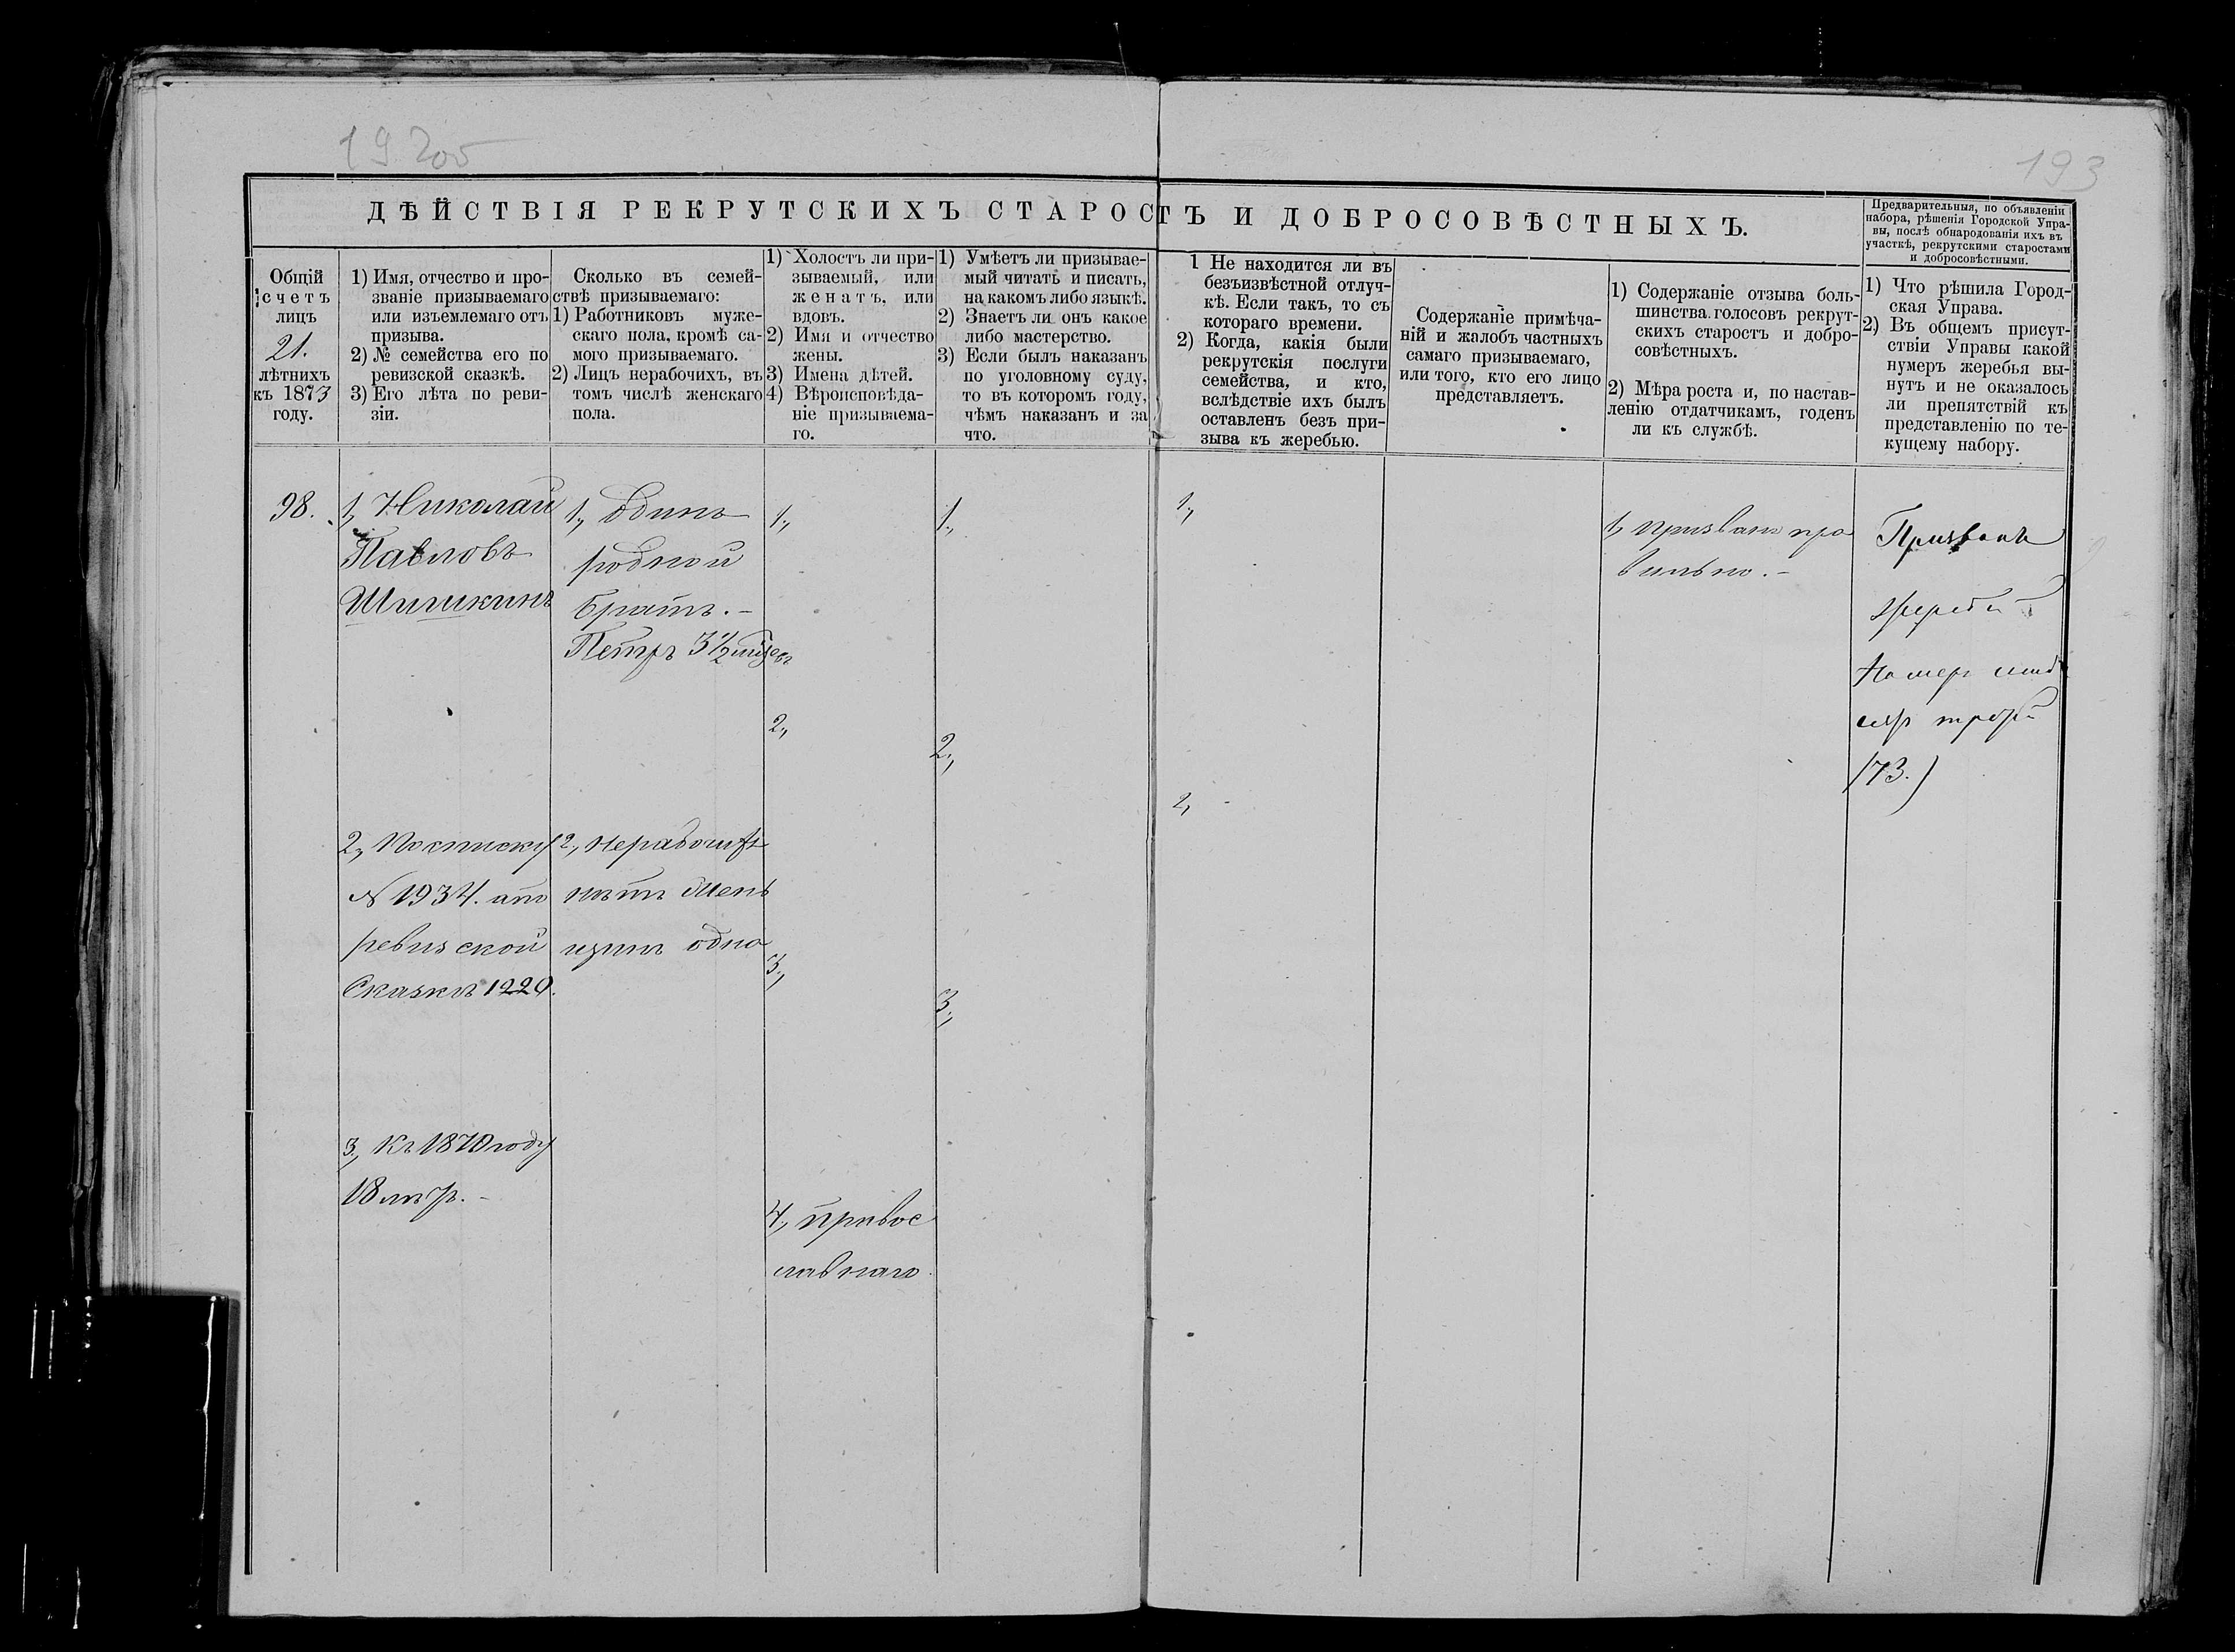 19 205
193
ДѢЙСТВІЯ РЕКРУТСКИХЪ СТАРОСТЪ И ДОБРОСОВѢСТНЫХЪ.
Предварительныя, по объявленіи
набора, рѣшенія Городской Упра-
вы, послѣ обнародованія ихъ въ
участкѣ, рекрутскими старостами
и добросовѣстными.
Общій
счетъ
лицъ
21.
лѣтнихъ
къ 1873
году.
1) Имя, отчество и про-
званіе призываемаго
или изъемлемаго отъ
призыва.
2) № семейства его по
ревизской сказкѣ.
3) Его лѣта по реви-
зіи.
Сколько въ семей-
ствѣ призываемаго:
1) Работниковъ муже-
скаго пола, кромѣ са-
мого призываемаго.
2) Лицъ нерабочихъ, въ
томъ числѣ женскаго
пола.
1) Холостъ ли при-
зываемый, или
женатъ, или
вдовъ.
2) Имя и отчество
жены.
3) Имена дѣтей.
4) Вѣроисповѣда-
ніе призываема-
го.
1) Умѣетъ ли призывае-
мый читать и писать,
на какомъ либо языкѣ.
2) Знаетъ ли онъ какое
либо мастерство.
3) Если былъ наказанъ
по уголовному суду,
то въ которомъ году,
чѣмъ наказанъ и за
что.
1 Не находится ли въ
безъизвѣстной отлуч-
кѣ. Если такъ, то съ
котораго времени.
2) Когда, какія были
рекрутскія послуги
семейства, и кто,
вслѣдствіе ихъ былъ
оставленъ безъ при-
зыва къ жеребью.
Содержаніе примѣча-
ній и жалобъ частныхъ
самаго призываемаго,
или того, кто его лицо
представляетъ.
1) Содержаніе отзыва боль-
шинства голосовъ рекрут-
скихъ старостъ и добро-
совѣстныхъ.
2) Мѣра роста и, по настав-
ленію отдатчикамъ, годенъ
ли къ службѣ.
1) Что рѣшила Город-
ская Управа.
2) Въ общемъ присут-
ствіи Управы какой
нумеръ жеребья вы-
нутъ и не оказалось
ли препятствій къ
представленію по те-
кущему набору.
98.
1, Николай
Павловъ
Шишкинъ
2, По списку
N 1934. а по
ревизской
Сказкѣ 1220.
3, Къ 1870 году
18 лѣтъ.-
1, Одинъ
родной
братъ.-
Петръ 3 1/2
2, Нерабочихъ
нѣтъ Жен
щинъ одна
1,
2,
3,
4, Правос
лавнаго.
1,
2,
3,
1,
2,
1, Призванъ пра
вильно.-
Призванъ
жребій
Номеръ
(73.)